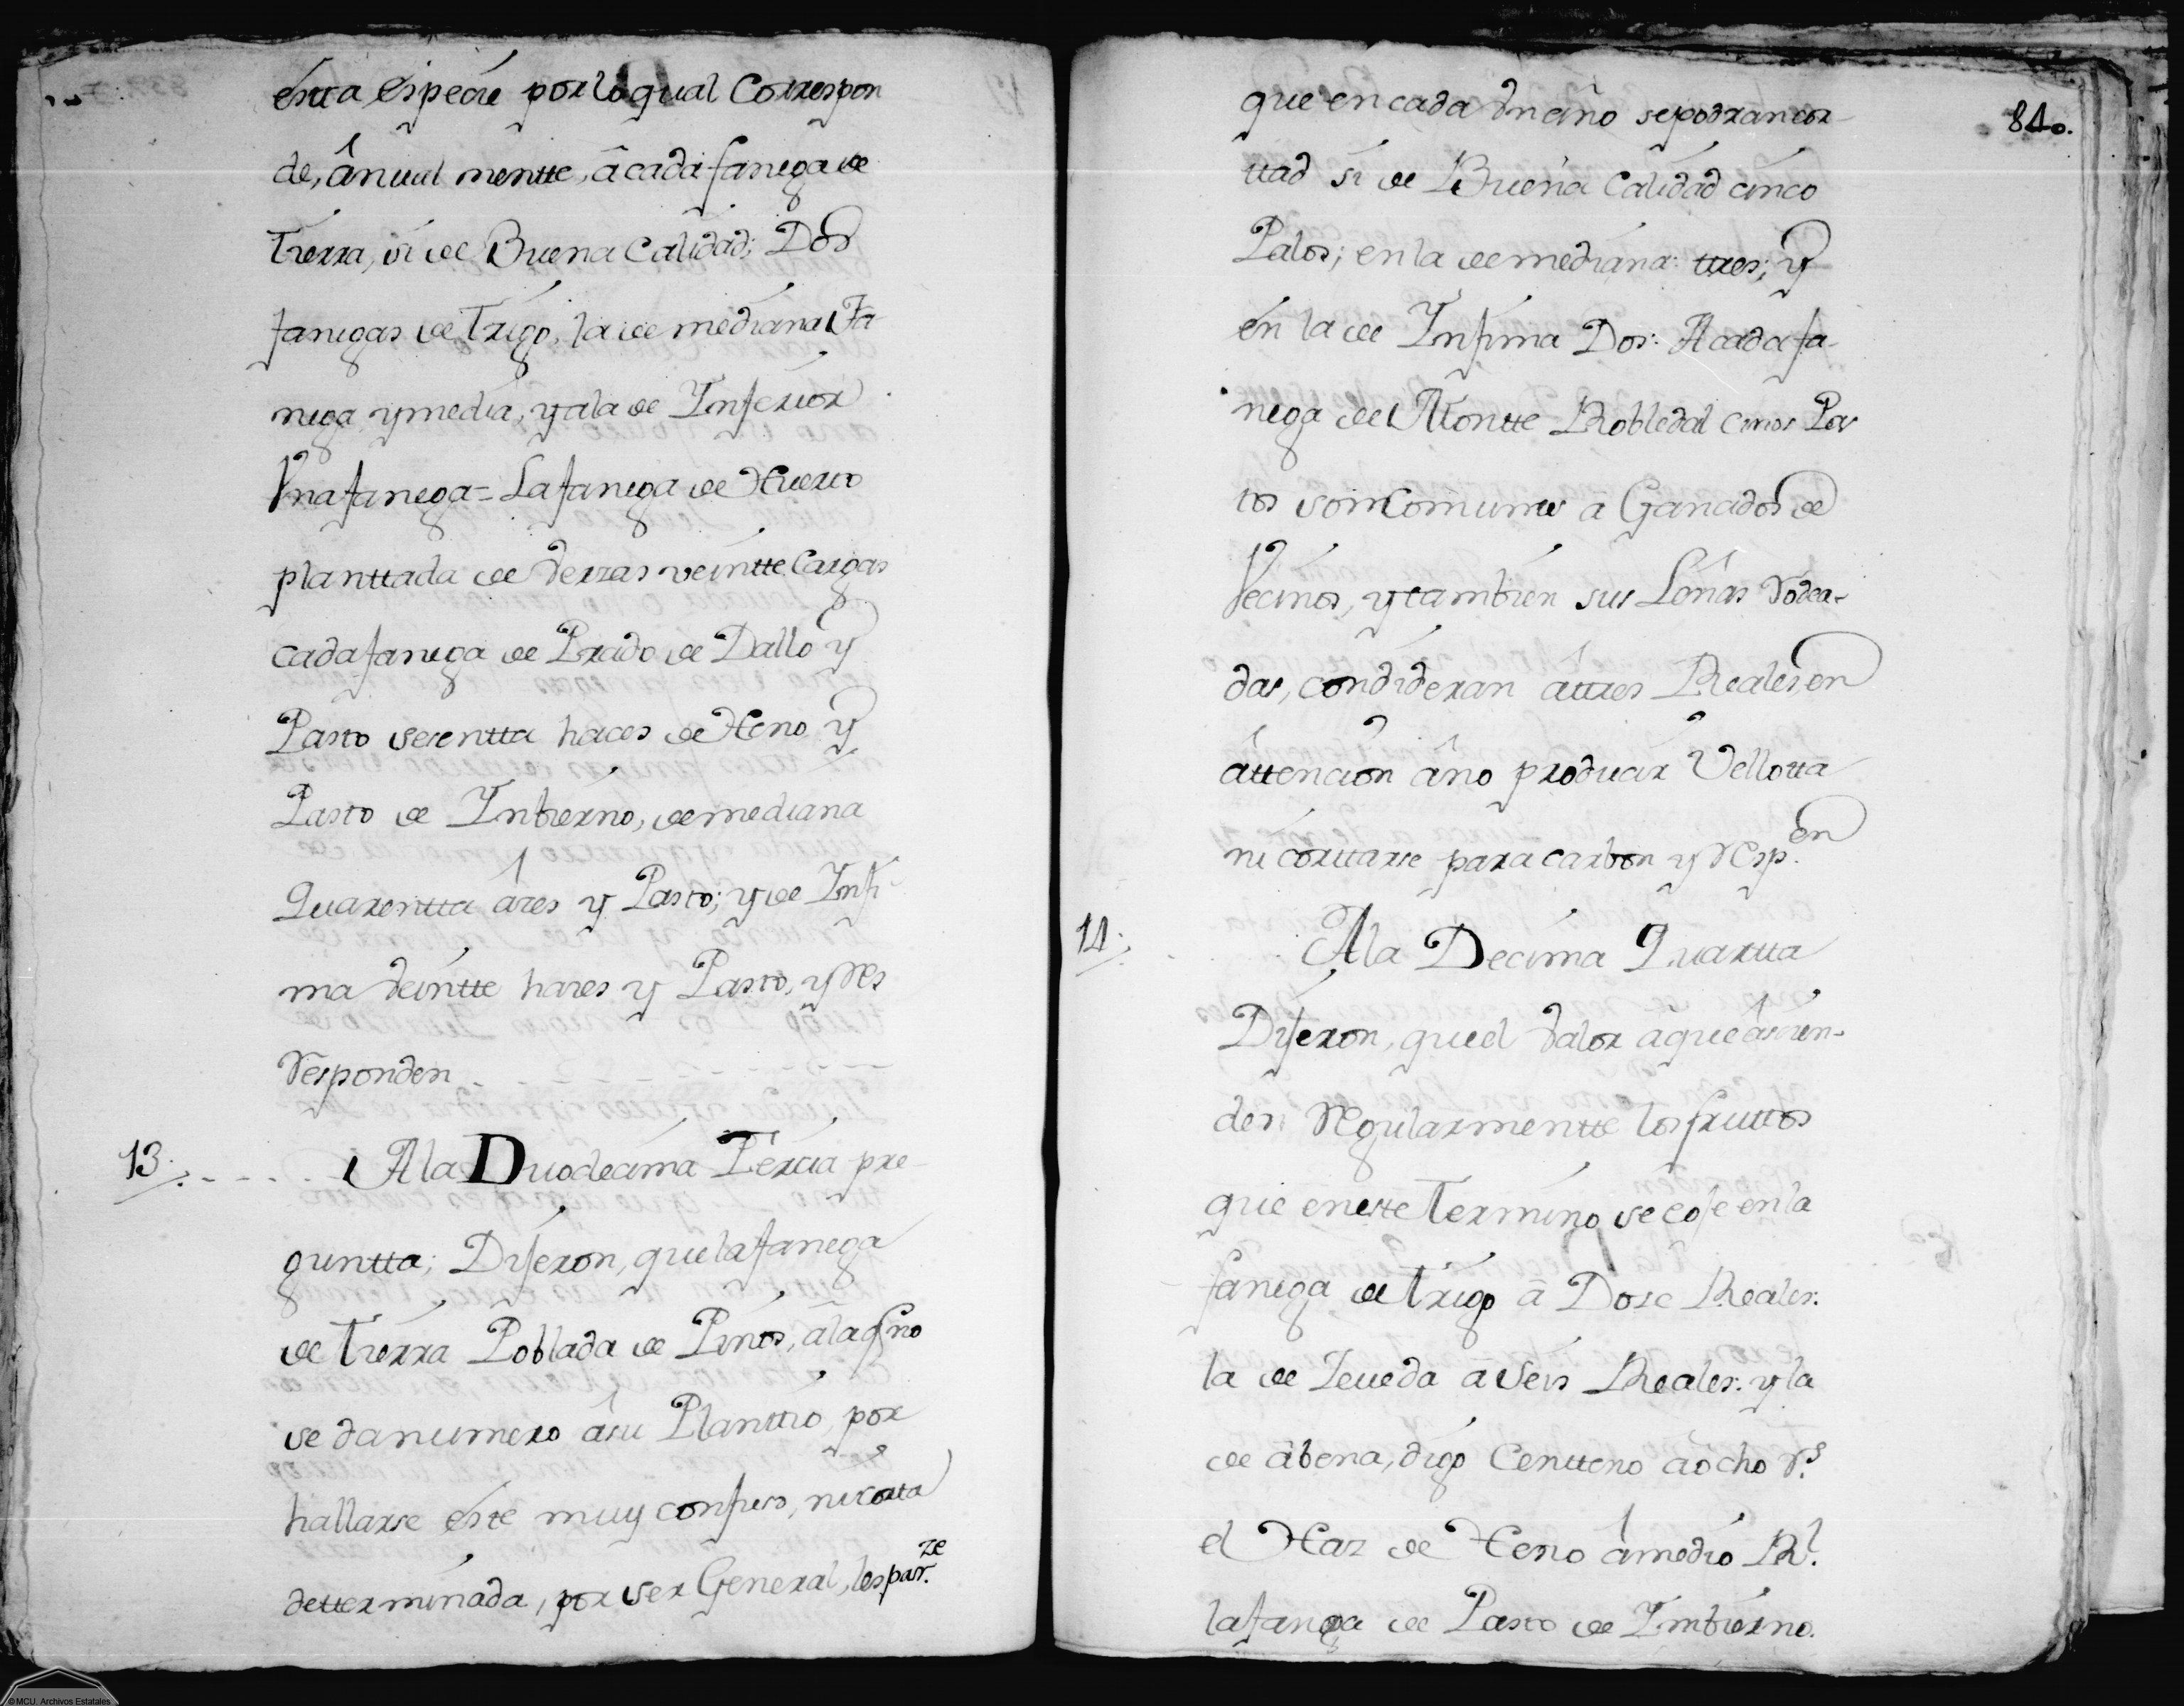 esta especie por lo qual Correspon
de, anual mentte, â cada fanega de
tierra, si de Buena Calidad; Dos
fanegas de Trigo, la de mediana Fa-
nega y media, y a la de Inferior
Vna fanega = La fanega de Huerto
planttada de Verzas veintte Cargas
cada fanega de Prado de Dallo y
Pasto sesentta haces de Heno y
Pasto de Inbierno, de mediana
Quarentta âces y Pasto; y de Infi-
ma Veintte haces y Pasto, y Res
Responden
13. A la Duodecima Tercia pre-
guntta; Dijeron, que la fanega
de tierra Poblada de Pinos, â la q.e no
se da numero âsu Planttio, por
hallarse éste muy confuso, ni cortta
determinada, por ser General, les par.ze
84o.
que en cada Vn año se podran cor-
ttad si de Buena Calidad cinco
Palos; en la de mediana: ttres; y
en la de Infima Dos: A cada fa-
nega de Montte Robledal cuios Pas
tos son Comunes a Ganados de
Vecinos, y tambien sus Leñas Vodea-
das, consideran âttres Reales, en
âttencion âno producir Vellotta
ni corttarse para carbon y Resp.en
14. A la Decima Quartta
Dijeron, que el Valor âque âscien-
den Regularmentte los fruttos
que en este termino se coje en la
fanega de trigo â Dose Reales:
la de Zeueda â seis Reales: y la
de âbena, digo Centteno âôcho r.s
el Haz de Heno âmedio R.l
la fanega de Pasto de Imbierno.
© MCU. Archivos Estatales